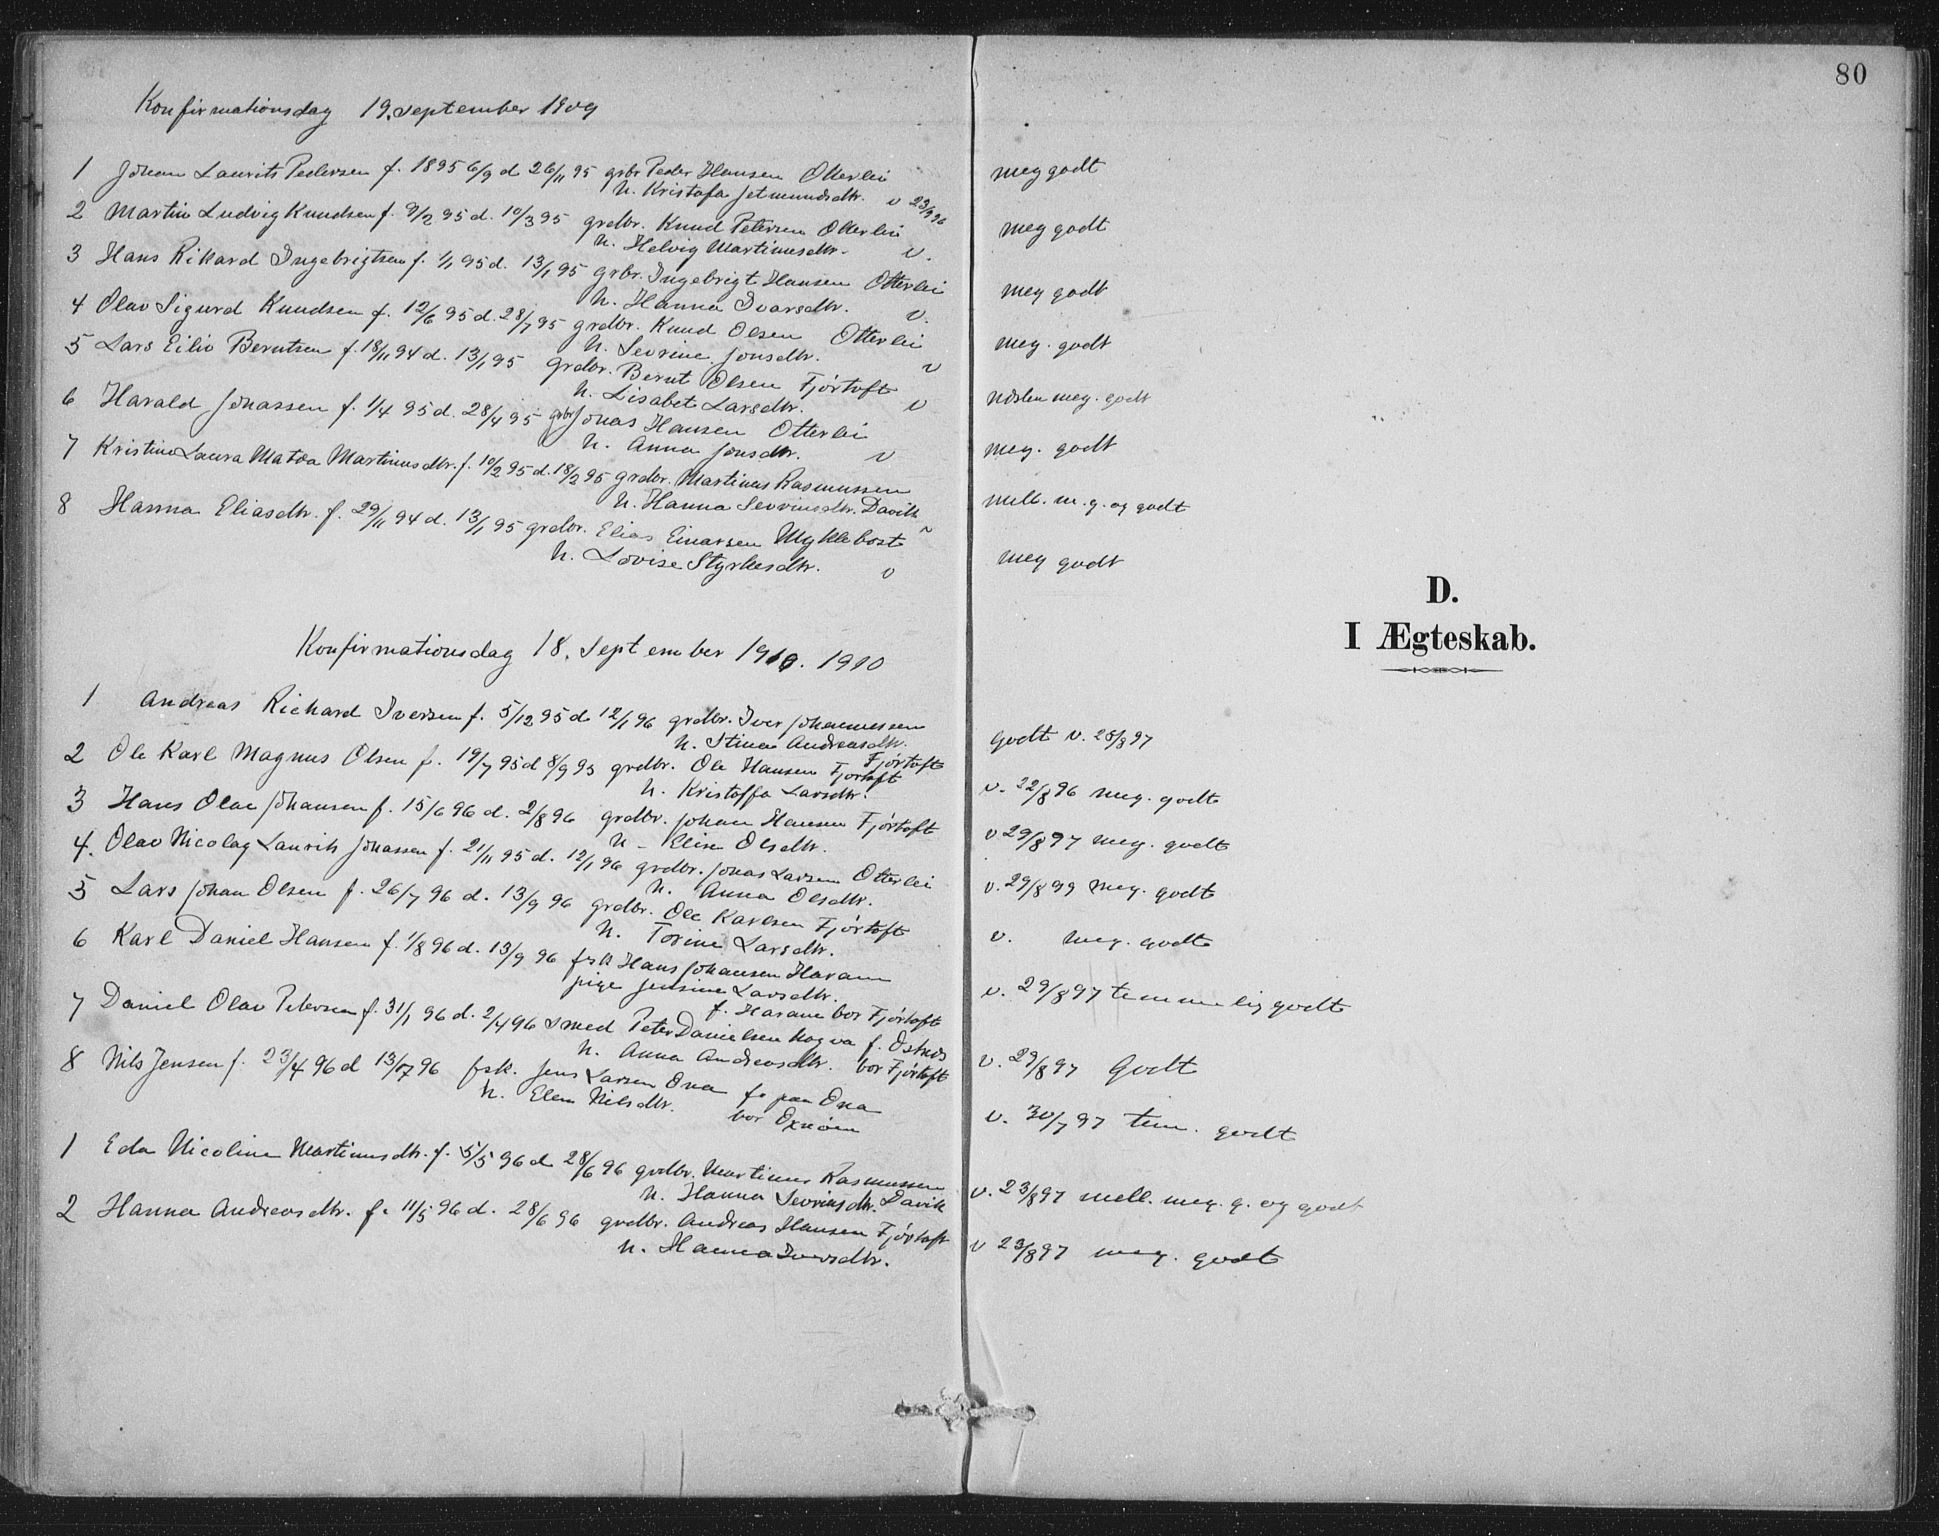 80
Konfirmationsdag 19. September 1909
1 Johan Laurits Pedersen f. 1895 6/9 d 26/11 95 grbr Peder Hansen Otterlei meg godt
h. Kristofa Jetmundsdtr. v 23/9 96
2 Martin Ludvig Knudsen f. 9/2 95 d. 10/3 95 grdbr. Knud Petersen Otterlei meg godt
h. Helvig Martinusdtr. v.
3 Hans Rikard Ingebrigtsen f. 1/1 95 d. 13/1 95 grbr. Ingebrigt Hansen Otterlei meg godt
h. Hanna Ivarsdtr. v.
4 Olav Sigurd Knudsen f. 12/6 95 d. 28/7 95 grdbr. Knud Olsen Otterlei meg. godt
h. Sevrine Jonsdtr. v
5 Lars Eiliv Berntsen f. 18/11 94 d. 13/1 95 grdbr. Bernt Olsen Fjørtoft næsten meg. godt
h. Lisabet Larsdtr. v
6 Harald Johassen f. 1/4 95 d. 28/4 95 grbr Jonas Hansen Otterlei meg. godt
h. Anna Jonsdtr. v
7 Kristine Laura Matea Martinusdtr. f. 10/2 95 d. 18/2 95 grdbr. Martinus Rasmussen mell. m. g. og godt
h. Hanna Sevrinsdtr. Davik v
8 Hanna Eliasdtr. f. 29/11 94 d. 13/1 95 grdbr. Elias Einarsen Myklebost meg godt
h. Lovise Styrkesdtr. v
D.
I Ægteskab.
Konfirmationsdag 18. September 1910. 1910
1 Andreas Richard Iversen f. 5/12 95 d 12/1 96 grdbr. Iver Johannessen godt v. 28/8 97
h. Stina Andreasdtr. Fjørtoft
2 Ole Karl Magnus Olsen f. 19/7 95 d 8/9 95 grdbr. Ole Hansen Fjørtoft v. 22/8 96 meg. godt
h. Kristoffa Larsdtr.
3 Hans Olai Johansen f. 15/6 96 d. 2/8 96 grdbr. Johan Hansen Fjørtoft v 29/8 97 meg. godt
h - Elise Olsdtr.
4. Olav Nicolay Laurits Johassen f. 21/11 95 d. 12/1 96 grdbr. Jonas Larsen Otterlei v. 29/8 99 meg. godt
h. Anna Olsdtr.
5 Lars Johan Olsen f. 26/7 96 d. 13/9 96 grdbr. Ole Karlsen Fjørtoft v. meg. godt
h. Torine Larsdtr.
6 Karl Daniel Hansen f. 1/8 96 d. 13/9 96 fsk Hans Johansen Haram v. 29/8 97 temmelig godt
pige Jensine Larsdtr.
f. Haram bor Fjørtoft
7 Daniel Olav Petersen f. 31/1 96 d. 2/4 96 smed Peter Danielsen Hagva f. Østnes v. 29/8 97 Godt
h. Anna Andreasdtr. bor Fjørtoft
8 Nils Jensen f. 23/4 96 d 13/7 96 fsk. Jens Larsen Ona f. paa Ona v. 30/7 97 tem. godt
h. Elen Nilsdtr. bor Oxnøen
1 Eda Nicoline Martinusdtr. f. 5/5 96 d 28/6 96 grdbr. Martinus Rasmussen v. 23/8 97 mell. meg. g. og godt
h. Hanna Sevrinsdtr. Davik
2 Hanna Andreasdtr. f. 11/5 96 d. 28/6 96 grdbr. Andreas Hansen Fjørtoft v 23/8 97 meg. godt
h. Hanna Iversdtr.